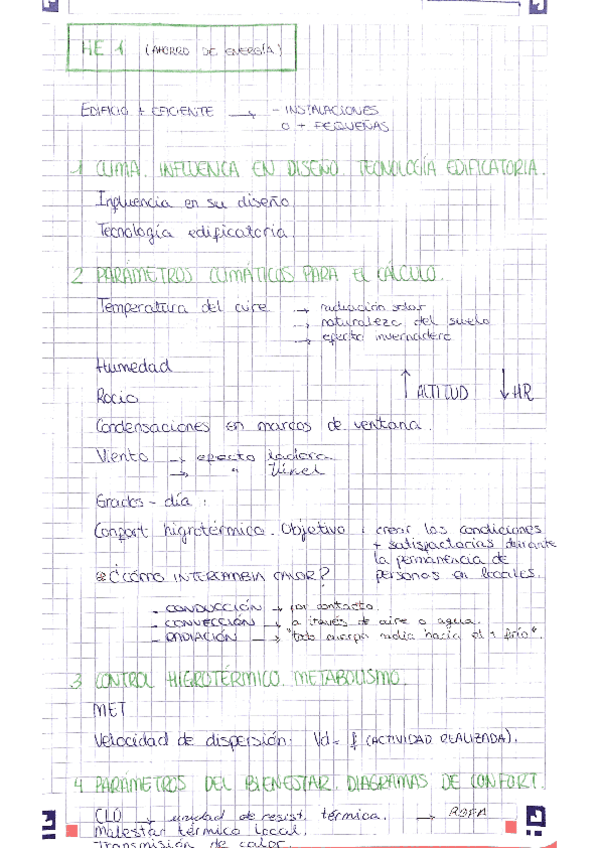 HE 1 (AHORRO DE ENERGÍA)
EDIFICIO + EFICIENTE → - INSTALACIONES
O + PEQUEÑAS
1 CLIMA. INFLUENCIA EN DISEÑO. TECNOLOGÍA EDIFICATORIA.
Influencia en su diseño
Tecnología edificatoria.
2 PARÁMETROS CLIMÁTICOS PARA EL CÁLCULO.
Temperatura del aire → radiación solar
→ naturaleza del suelo
→ efecto invernadero
Humedad
Rocío ↑ ALTITUD ↓ HR
Condensaciones en marcos de ventana.
Viento → efecto ladera
→ " túnel
Grados - día :
Confort higrotérmico. Objetivo : crear las condiciones
+ satisfactorias durante
la permanencia de
personas en locales.
¿CÓMO INTERCAMBIA CALOR?
- CONDUCCIÓN → por contacto.
- CONVECCIÓN → a través de aire o agua.
- RADIACIÓN → "todo cuerpo radia hacia el + frío".
3 CONTROL HIGROTÉRMICO. METABOLISMO.
MET
Velocidad de dispersión: Vd = f (ACTIVIDAD REALIZADA).
4 PARÁMETROS DEL BIENESTAR. DIAGRAMAS DE CONFORT.
CLO → unidad de resist. térmica. → ROPA
Malestar térmico local.
Transmisión de calor.